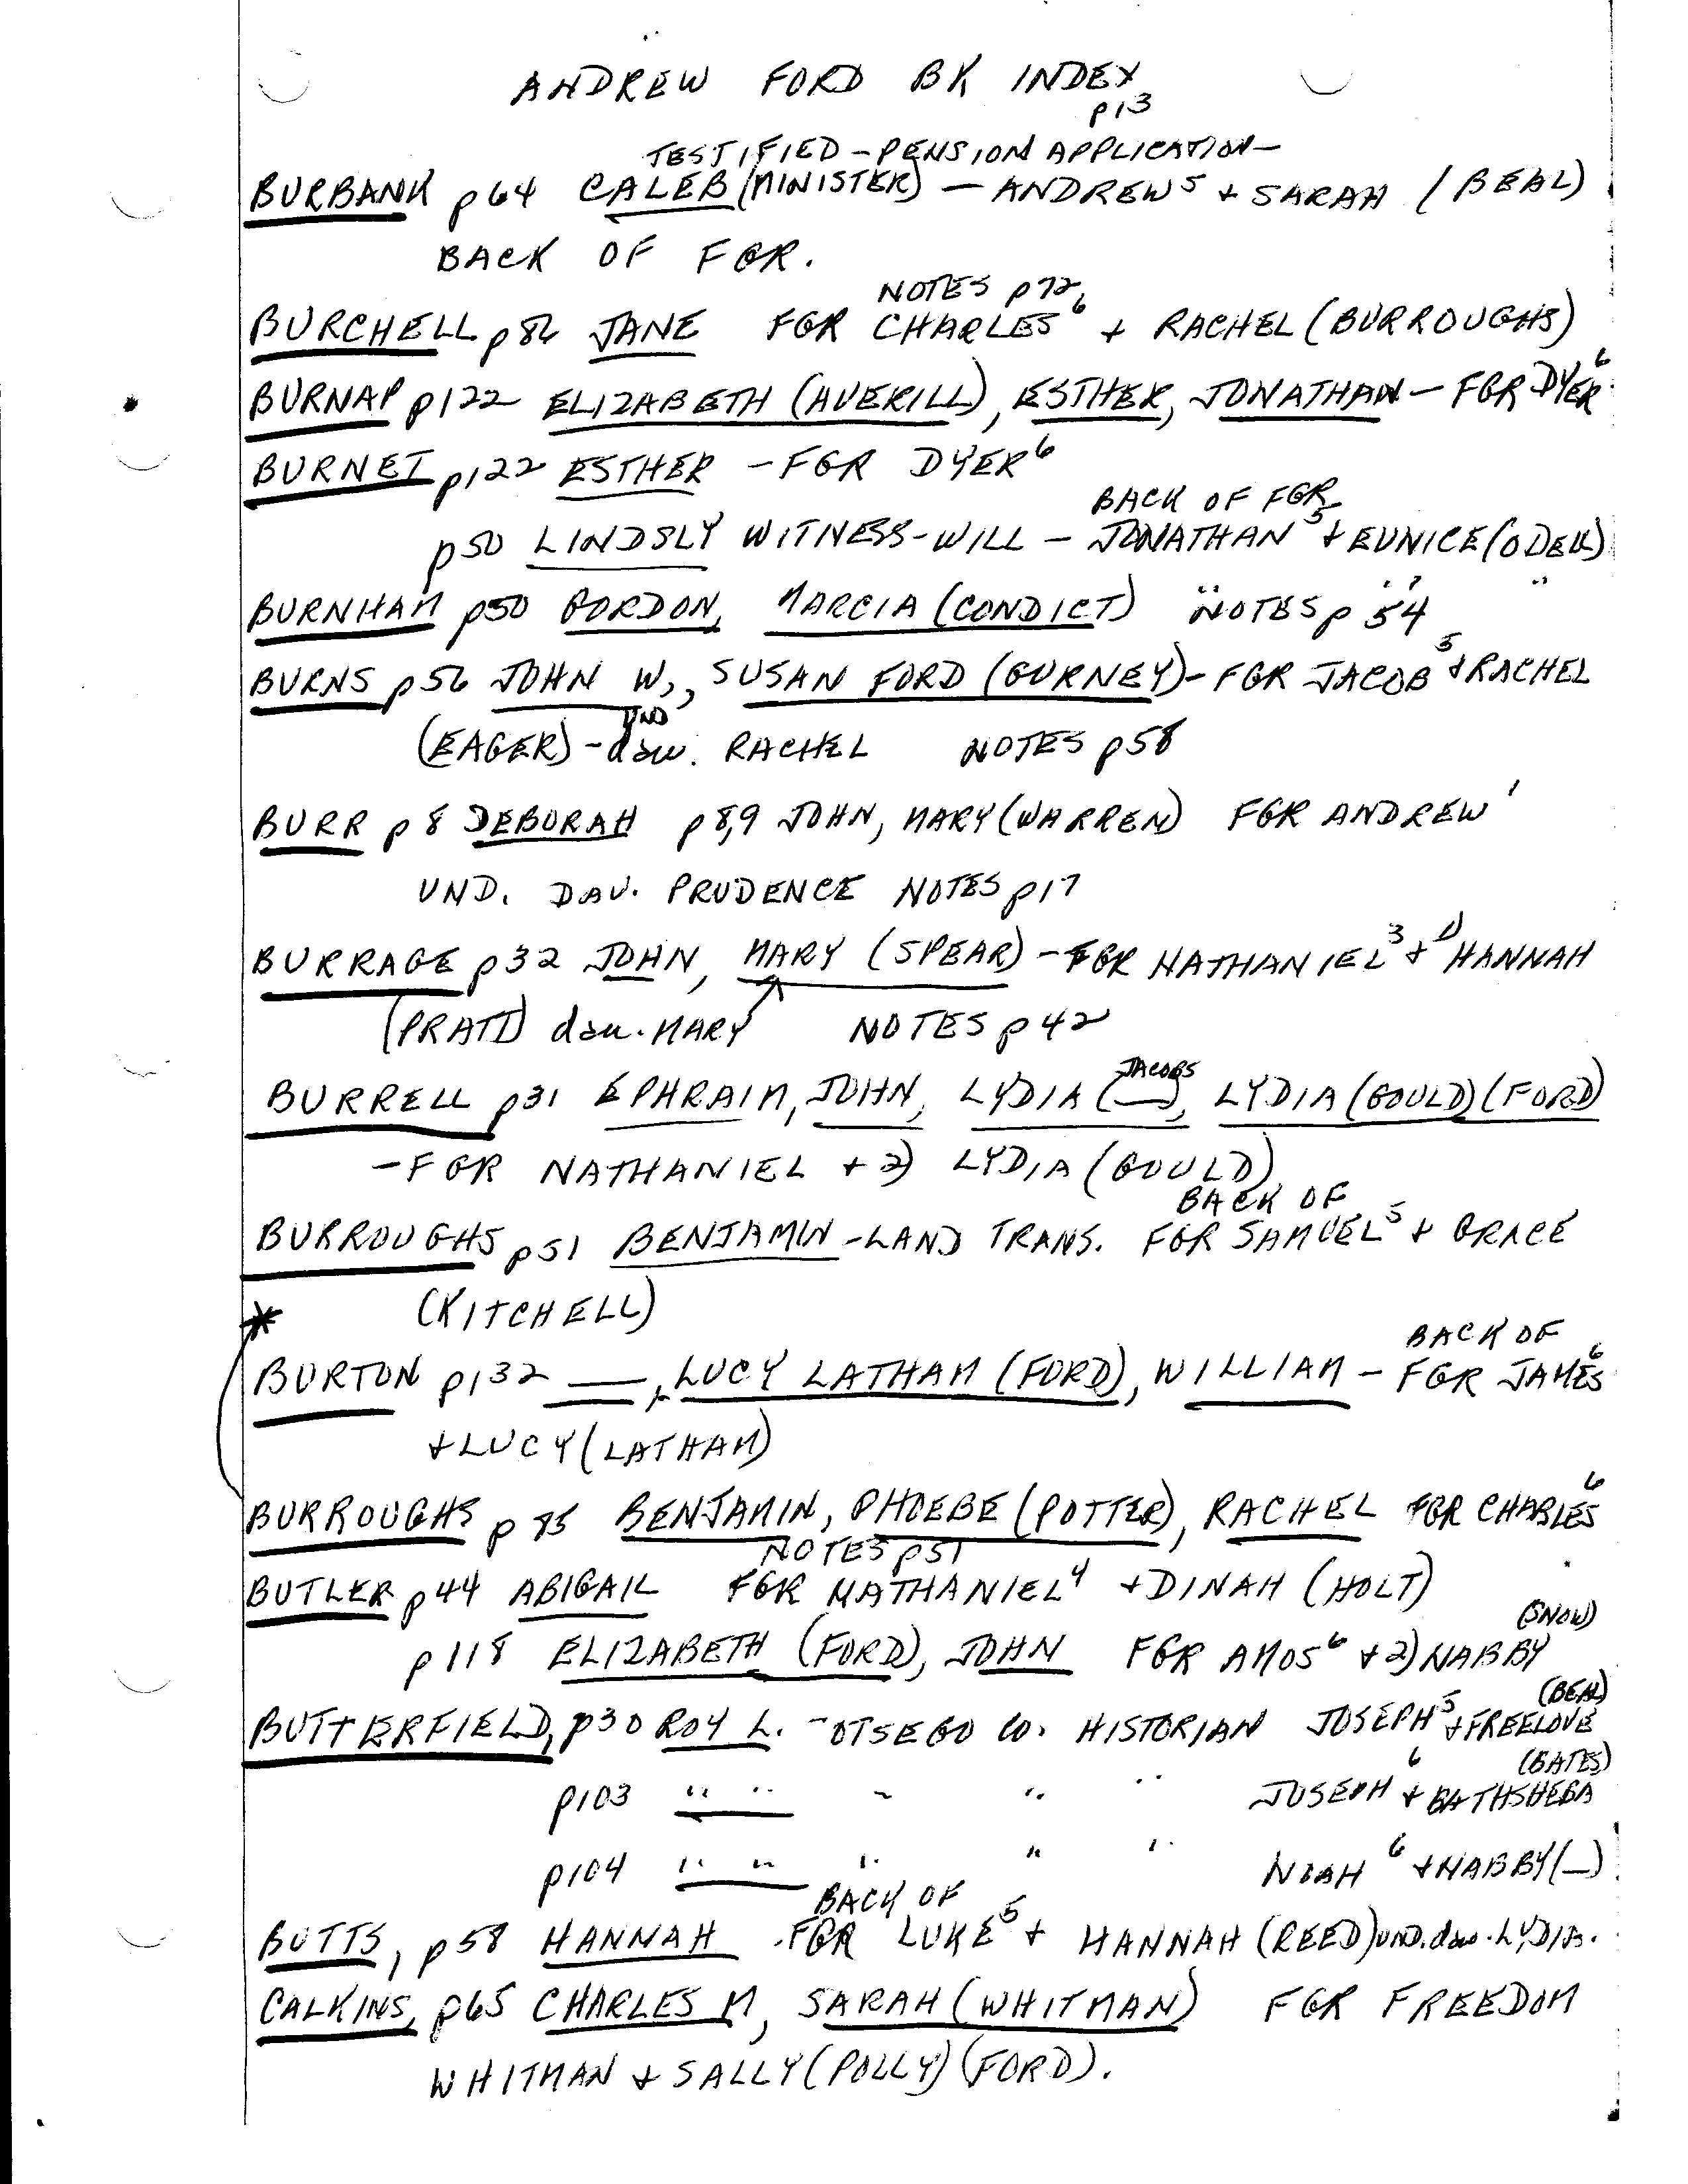 ANDREW FORD BK INDEX
p13
TESTIFIED - PENSION APPLICATION -
BURBANK p64 CALEB (MINISTER) - ANDREW⁵ + SARAH (BEAL)
BACK OF FGR.
NOTES p72
BURCHELL p86 JANE FGR CHARLES⁶ + RACHEL (BURROUGHS)
BURNAP p122 ELIZABETH (AVERILL), ESTHER, JONATHAN - FGR DYER⁶
BURNET p122 ESTHER - FGR DYER⁶
BACK OF FGR
p50 LINDSLY WITNESS-WILL - JONATHAN⁵ + EUNICE (ODELL)
BURNHAM p50 GORDON, MARCIA (CONDICT) " " " NOTES p 54
BURNS p56 JOHN W., SUSAN FORD (GURNEY) - FGR JACOB⁵ + RACHEL
UND
(EAGER) - dau. RACHEL NOTES p58
BURR p8 DEBORAH p8,9 JOHN, MARY (WARREN) FGR ANDREW¹
UND. DAU. PRUDENCE NOTES p17
BURRAGE p32 JOHN, MARY (SPEAR) - FGR NATHANIEL³ + 1) HANNAH
(PRATT) dau. MARY NOTES p42
JACOBS
BURRELL p31 EPHRAIM, JOHN, LYDIA (__), LYDIA (GOULD) (FORD)
- FGR NATHANIEL + 2) LYDIA (GOULD)
BACK OF
BURROUGHS p51 BENJAMIN - LAND TRANS. FGR SAMUEL⁵ + GRACE
* (KITCHELL)
BACK OF
BURTON p132 __, LUCY LATHAM (FORD), WILLIAM - FGR JAMES⁶
+ LUCY (LATHAM)
BURROUGHS p 85 BENJAMIN, PHOEBE (POTTER), RACHEL FGR CHARLES⁶
NOTES p51
BUTLER p44 ABIGAIL FGR NATHANIEL⁴ + DINAH (HOLT)
(SNOW)
p118 ELIZABETH (FORD), JOHN FGR AMOS⁶ + 2) NABBY
(BEAL)
BUTTERFIELD, p30 ROY L. - OTSEGO CO. HISTORIAN JOSEPH⁵ + FREELOVE
(BATES)
p103 " " - " " JOSEPH⁶ + BATHSHEBA
p104 " " " " " NOAH⁶ + NABBY (__)
BACK OF
BUTTS, p58 HANNAH FGR LUKE⁵ + HANNAH (REED) UND. dau. LYDIA.
CALKINS, p65 CHARLES M, SARAH (WHITMAN) FGR FREEDOM
WHITMAN + SALLY (POLLY) (FORD).